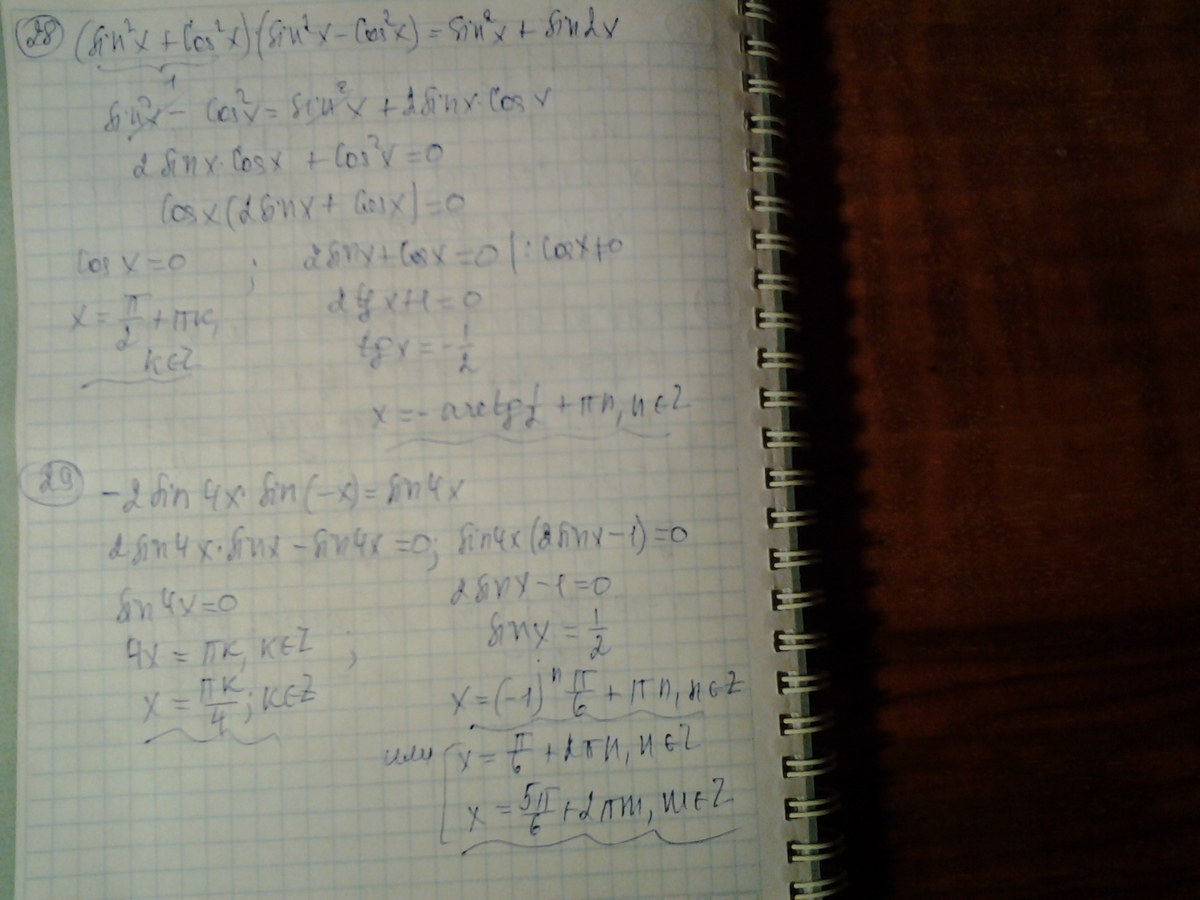 28 (sin²x + cos²x)(sin²x - cos²x) = sin²x + sin2x
1
sin²x - cos²x = sin²x + 2sinx·cosx
2sinx·cosx + cos²x = 0
cosx(2sinx + cosx) = 0
cosx = 0 ; 2sinx + cosx = 0 | : cosx ≠ 0
x = π/2 + πk, 2tgx + 1 = 0
k∈Z tgx = -1/2
x = - arctg 1/2 + πn, n∈Z
29 -2sin4x·sin(-x) = sin4x
2sin4x·sinx - sin4x = 0; sin4x(2sinx - 1) = 0
sin4x = 0 2sinx - 1 = 0
4x = πk, k∈Z ; sinx = 1/2
x = πk/4; k∈Z x = (-1)ⁿ π/6 + πn, n∈Z
или [ x = π/6 + 2πn, n∈Z
x = 5π/6 + 2πm, m∈Z